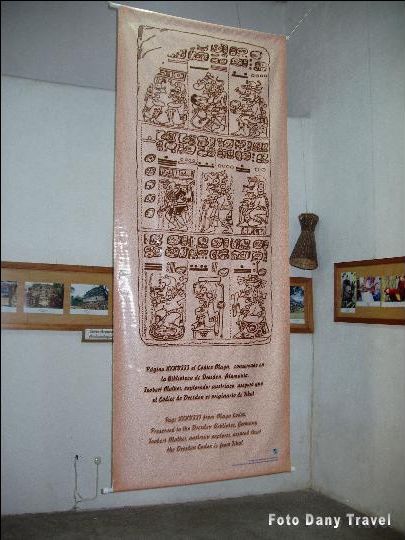 Página XXXVIII el Códice Maya, conservado en
la Biblioteca de Dresden, Alemania.
Teobert Maller, explorador austríaco, aseguró que
el Códice de Dresden es originario de Tikal
Page XXXVIII from Maya Codex,
Preserved in the Dresden Bibliotex, Germany
Teobert Maller, austrian explorer, assured that
the Dresden Codex is from Tikal
Foto Dany Travel